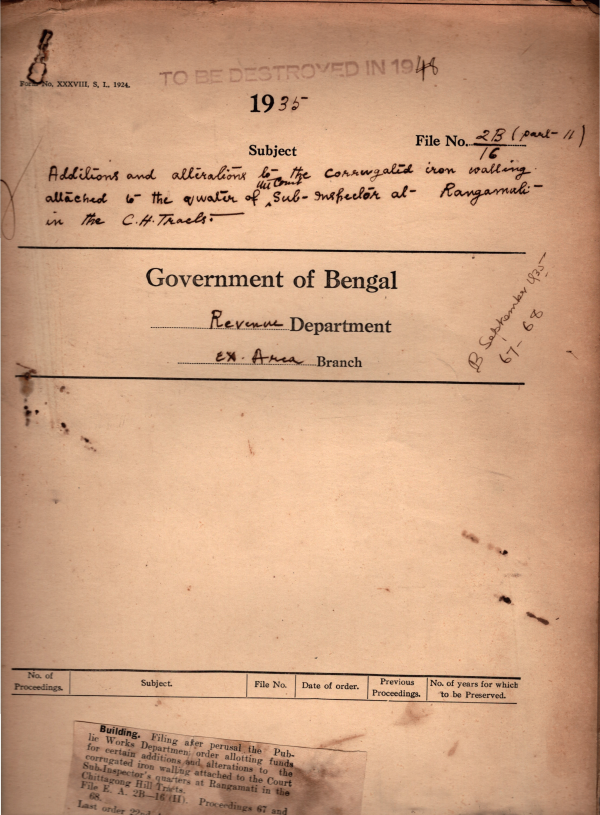 Form No. XXXVIII, S. I., 1924.
TO BE DESTROYED IN 1948
1935
File No. 2B (part-II)
16
Subject
Additions and alterations to the corrugated iron walling
attached to the quater of Court Sub-Inspector at Rangamati
in the C.H. Tracts.
Government of Bengal
Revenue Department
Ex. Area Branch
B September 1935
67-68
No. of Proceedings. Subject. File No. Date of order. Previous Proceedings. No. of years for which to be Preserved.
Building. Filing after perusal the Pub-
lic Works Department order allotting funds
for certain additions and alterations to the
corrugated iron waling attached to the Court
Sub-Inspector's quarters at Rangamati in the
Chittagong Hill Tracts.
File E. A. 2B—16 (II). Proceedings 67 and
68.
Last order